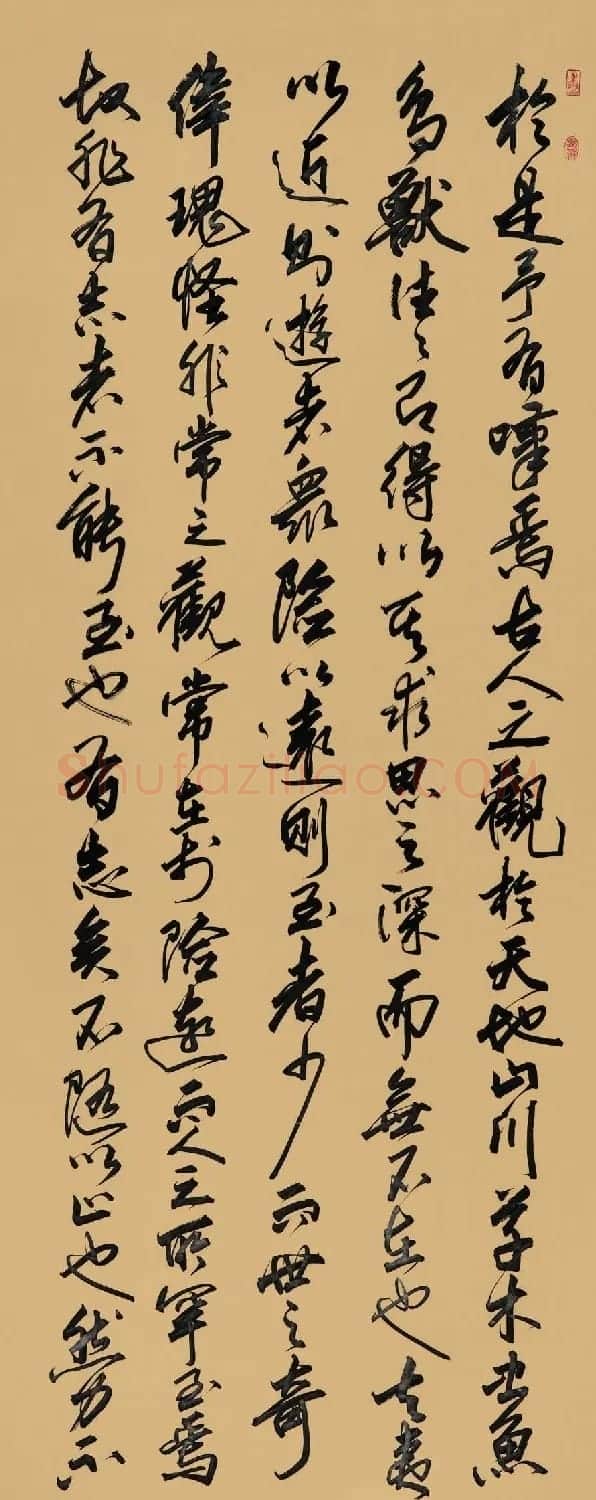 於是予有嘆焉古人之觀於天地山川草木虫魚
鳥獸往々得以其求思之深而無不在也夫夷
以近則遊者衆險以遠則至者少而世之奇
偉瑰怪非常之觀常在於險遠而人之所罕至焉
故非有志者不能至也有志矣不隨以止也然力不
Shufaziliao.COM